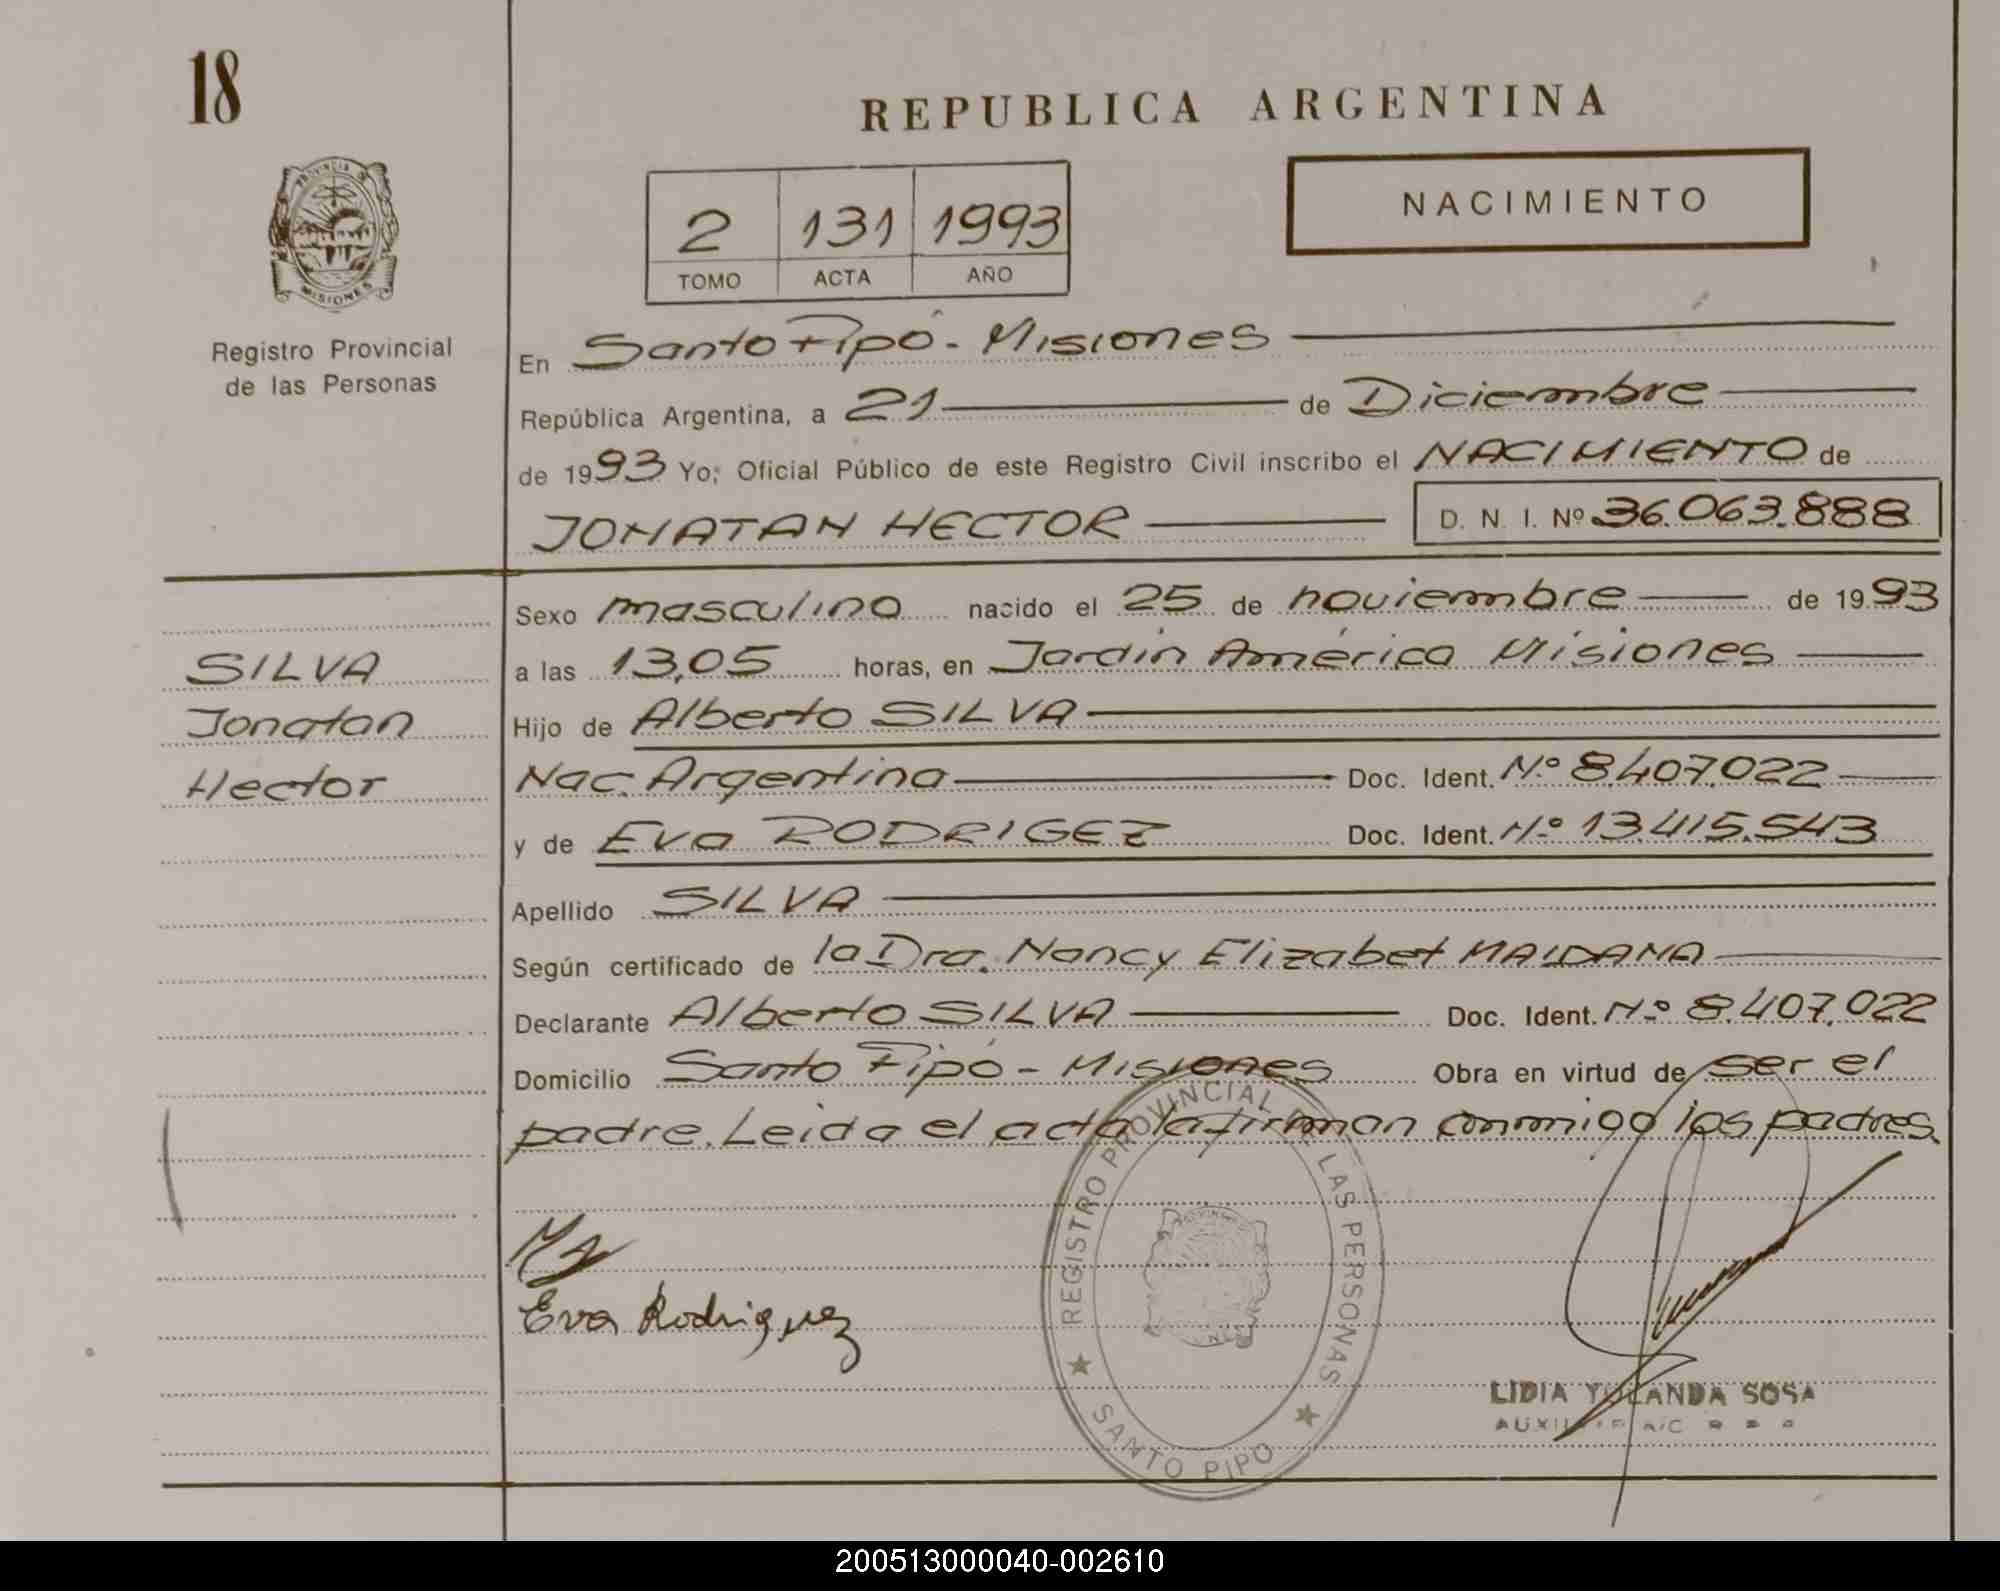 18
REPUBLICA ARGENTINA
PROVINCIA DE
MISIONES
NACIMIENTO
2 131 1993
TOMO ACTA AÑO
Registro Provincial
de las Personas
En Santo Pipó - Misiones
República Argentina, a 21 de Diciembre
de 1993 Yo; Oficial Público de este Registro Civil inscribo el NACIMIENTO de
JONATAN HECTOR D. N. I. Nº 36.063.888
Sexo masculino nacido el 25 de noviembre de 1993
SILVA
a las 13,05 horas, en Jardín América Misiones
Jonatan
Hijo de Alberto SILVA
Hector
Nac. Argentina Doc. Ident. N.º 8.407.022
y de Eva RODRIGEZ Doc. Ident. N.º 13.415.543
Apellido SILVA
Según certificado de la Dra. Nancy Elizabet MALDANA
Declarante Alberto SILVA Doc. Ident. N.º 8.407.022
Domicilio Santo Pipó - Misiones Obra en virtud de ser el
padre. Leida el acta la firman conmigo los padres.
Eva Rodriguez
REGISTRO PROVINCIAL DE LAS PERSONAS
SANTO PIPO
LIDIA YOLANDA SOSA
200513000040-002610